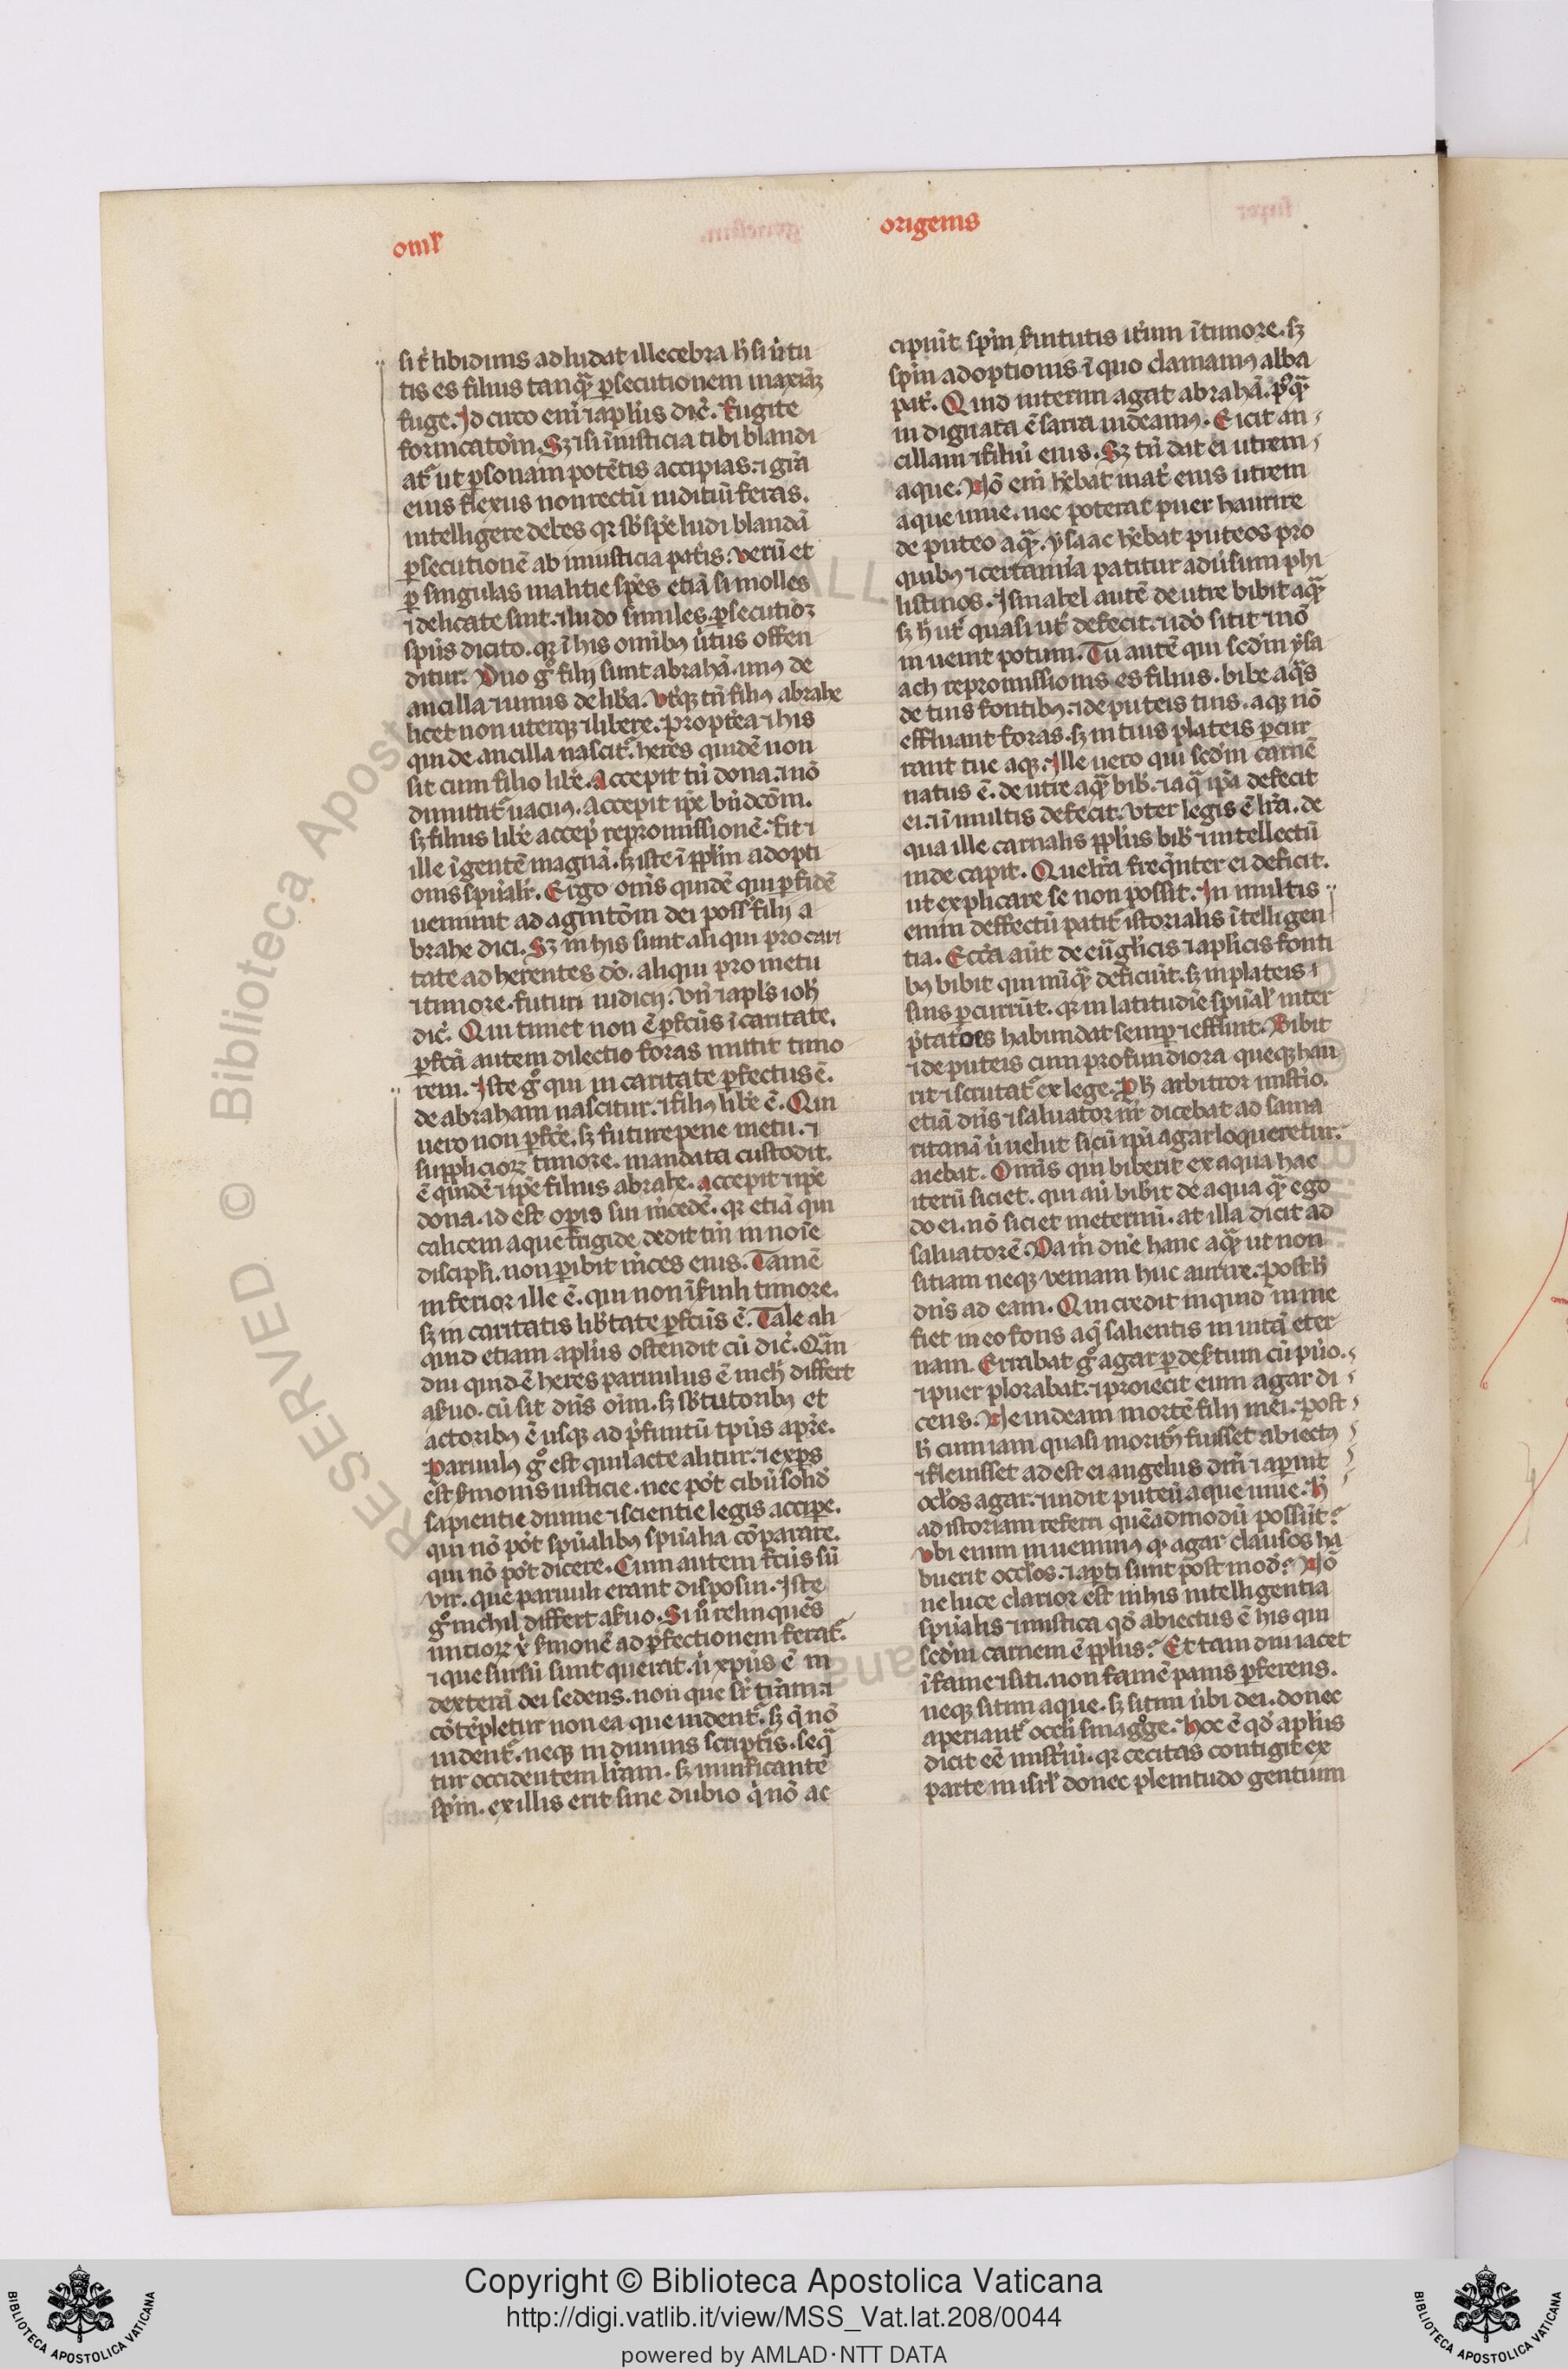 omł
origenis
sit̉ libidinis adludat illecebra h̓ si u̓tu
tis es filius tanqͣ ꝑsecutionem maxiaꝫ
fuge. Idcirco eni̅ ⁊ apl̓us dic̓. Fugite
fornicatōm. Sꝫ ⁊ si iniusticia tibi blandi
at᷑ ut ꝑsonam potētis accipias. ⁊ gr̄a
eius flexus non rectū iuditiū feras.
intelligere debes qꝛ sb̓ spe̓ ludi blandā
ꝑsecutionē ab iniusticia pat̓is. Verū et
ꝑ singulas malitie spe̓s etiā si molles
⁊ delicate sint. ⁊ ludo similes ꝑsecutiōꝛ
spu̓s dicito. qꝛ ī his omibꝰ u̓tus offen
ditur. Duo gͦ filij sunt abrahā. unꝰ de
ancilla ⁊ unus de lib̓a. Vt̓qꝫ tn̄ filiꝰ abrahe
licet non uterqꝫ ⁊ libere. propt̓ea ⁊ his
qui de ancilla nascit᷑. heres quidē non
sit cum filio lib̓e. Accepit tn̄ dona. ⁊ nō
dimittit᷑ uacuꝰ. Accepit ip̓e bn̄dcōm.
sꝫ filius lib̓e accep̓ repromissionē. fit ⁊
ille ī gentē magnā. h̓ iste ī ppl̓m adopti
onis spu̓alr̓. Ergo om̄s quidē qui ꝑ fidē
ueniunt ad agnitōm dei poss̓ filij a
brahe dici. Sꝫ in his sunt aliqui pro cari
tate adherentes do̓. aliqui pro metu
⁊ timore futuri iudicij. Vn̄ ⁊ apl̓s ioh̓
dic̓. Qui timet non ē ꝑfcu̓s ī caritate.
ꝑfcā autem dilectio foras mittit timo
rem. Iste gͦ qui in caritate ꝑfectus ē.
de abraham nascitur. ⁊ filiꝰ lib̓e ē. Qui
uero non ꝑfc̓e. sꝫ future pene metu. ⁊
suppliciorꝝ timore. mandata custodit.
ē quidē ⁊ ip̓e filius abrahe. Accepit ⁊ ip̓e
dona. id est oꝑis sui m̓cedē. qꝛ etiā qui
calicem aque frigide dedit tm̄ in noi̅e
discipl̓i. non ꝑibit m̓ces eius. Tamē
inferior ille ē. qui non ī s̓uili timore.
sꝫ in caritatis lib̓tate ꝑfcu̓s ē. Tale ali
quid etiam apl̓us ostendit cū dic̓. Qͣm
diu quid ē heres paruulus ē nich̓ differt
as̓uo. cū sit dn̄s oi̅m. sꝫ sb̓ tutoribꝰ et
actoribꝰ ē usqꝫ ad p̓finitū tp̓us a pr̓e.
Paruulꝰ gͦ est qui lacte alitur. ⁊ expers
est s̓monis iusticie. nec pōt cibū solidū
sapientie diuine ⁊ scientie legis accipe.
qui nō pōt spu̓alibꝰ spu̓alia cōparare.
qui nō pōt dicere. Cum autem fcu̓s sū
vir. que paruuli erant disposui. Iste
gͦ nichil differt as̓uo. Si uͦ relinquēs
initiorꝝ x̓ s̓monē ad ꝑfectionem ferat᷑.
⁊ que sursū sunt querat. u̓ xp̄us ē in
dexterā dei sedens. non que sr̓ t̓ram. ⁊
cōte̅pletur non ea que uident᷑. sꝫ q̓ nō
uident᷑. neqꝫ in diuinis scripturis. seqͣ
tur occidentem lr̄am. sꝫ uiuificantē
spm̄. ex illis erit sine dubio q̓ nō ac
cipiūt spm̄ s̓uitutis it̓um ī timore. sꝫ
spm̄ adoptionis ī quo clamamꝰ abba
pat̓. Quid interim agat abrahā. pꝰqͣ
indignata ē sarra uideamꝰ. Eicit an
cillam ⁊ filiū eius. Sꝫ tn̄ dat ei utrem
aque. Nō eni̅ he̓bat mat̓ eius utrem
aque uiue. nec poterat puer haurire
de puteo aqͣ. ysaac he̓bat puteos pro
quibꝰ ⁊ certamia patitur adu̓sum phi
listinos. Ismahel autē de utre bibit aqͣ
sꝫ h̓ ut̓ quasi ut̓ defecit. ⁊ ido̓ sitit ⁊ nō
inuenit potum. Tu autē qui scdm̄ ysa
ach repromissionis es filius. bibe aqͣs
de tuis fontibꝰ. ⁊ de puteis tuis. aqꝫ nō
effluant foras. sꝫ in tuis plateis ꝑcur
rant tue aqꝫ. Ille uero qui scdm̄ carnē
natus ē. de utre aqͣ bib̓. ⁊ aqͣ ip̄a defecit
ei. ⁊ ī multis defecit. Vter legis ē lr̄a. de
qua ille carnalis ppl̓us bib̓ ⁊ intellectū
inde capit. Que lr̄a freq̓nter ei deficit.
ut explicare se non possit. In multis
enim deffectū patit᷑ istorialis ītelligen
tia. Ecc̄a aūt de eūgl̓icis ⁊ apl̓icis fonti
bꝰ bibit qui nūqͣ deficiūt. sꝫ in plateis
suis ꝑcurrūt. qꝛ in latitudi̅e spu̓al̓ inter
p̓tatōes habundat semꝑ ⁊ effluut. Bibit
⁊ de puteis cum profundiora queqꝫ hau
rit ⁊ scrutat᷑ ex lege. Ph̓ arbitror mistio.
etiā dn̄s ⁊ saluator nr̄ dicebat ad sama
ritanā u̓ uelut sicū ip̄a agar loqueretur.
aiebat. Omnis qui biberit ex aqua hac
iterū siciet. qui aū bibit de aqua qͣ ego
do ei. nō siciet in eternū. at illa dicit ad
saluatorē. Da m̓ dn̄e hanc aqͣ ut non
sitiam neqꝫ ueniam huc aurire. post h̓
dn̄s ad eam. Qui credit inquid in me
fiet in eo fons aq̓ salientis in uitā eter
nam. Errabat gͦ agar ꝑ des̓tum cū pu̓o.
⁊ puer plorabat. ⁊ proiecit eum agar di
cens. Ne uideam mortē filij mei. post
h̓ cum iam quasi moritur̓ fuisset abiectꝰ
⁊ fleuisset adest ei angelus dni̅ ⁊ aperuit
oclo̓s agar. ⁊ uidit puteū aque uiue. h̓
ad istoriam referri quēadmodū possūt?
Vbi enim inuenimꝰ qꝫ agar clausos ha
buerit occlo̓s. ⁊ aꝑti sunt postmod̓? Nō
ne luce clarior est in his intelligentia
spu̓alis ⁊ mistica qd̓ abiectus ē his qui
scdm̄ carnem ē ppl̓us? Et tam diu iacet
ī fame ⁊ siti. non famē panis ꝑferens.
neqꝫ sitim aque. sꝫ sitim u̓bi dei. donec
aperiant᷑ occli̓ sinagoge. Hoc ē qd̓ apl̓us
dicit eē mist̓iū. qꝛ cecitas contigit ex
parte in isrl̓ donec plenitudo gentium
Copyright © Biblioteca Apostolica Vaticana
http://digi.vatlib.it/view/MSS_Vat.lat.208/0044
powered by AMLAD·NTT DATA
BIBLIOTECA APOSTOLICA VATICANA
BIBLIOTECA APOSTOLICA VATICANA